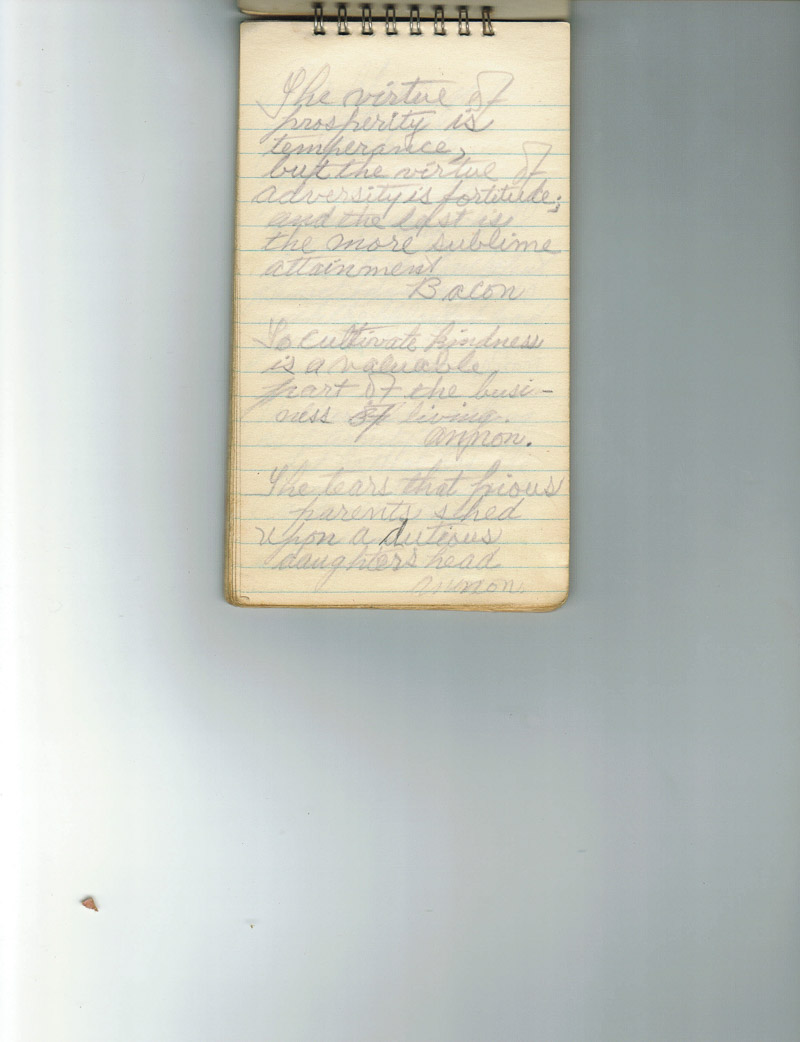 The virtue of
prosperity is
temperance,
but the virtue of
adversity is fortitude;
and the last is
the more sublime
attainment
Bacon
To cultivate kindness
is a valuable
part of the busi-
ness of living.
annon.
The tears that pious
parents shed
upon a dutious
daughters head
annon.